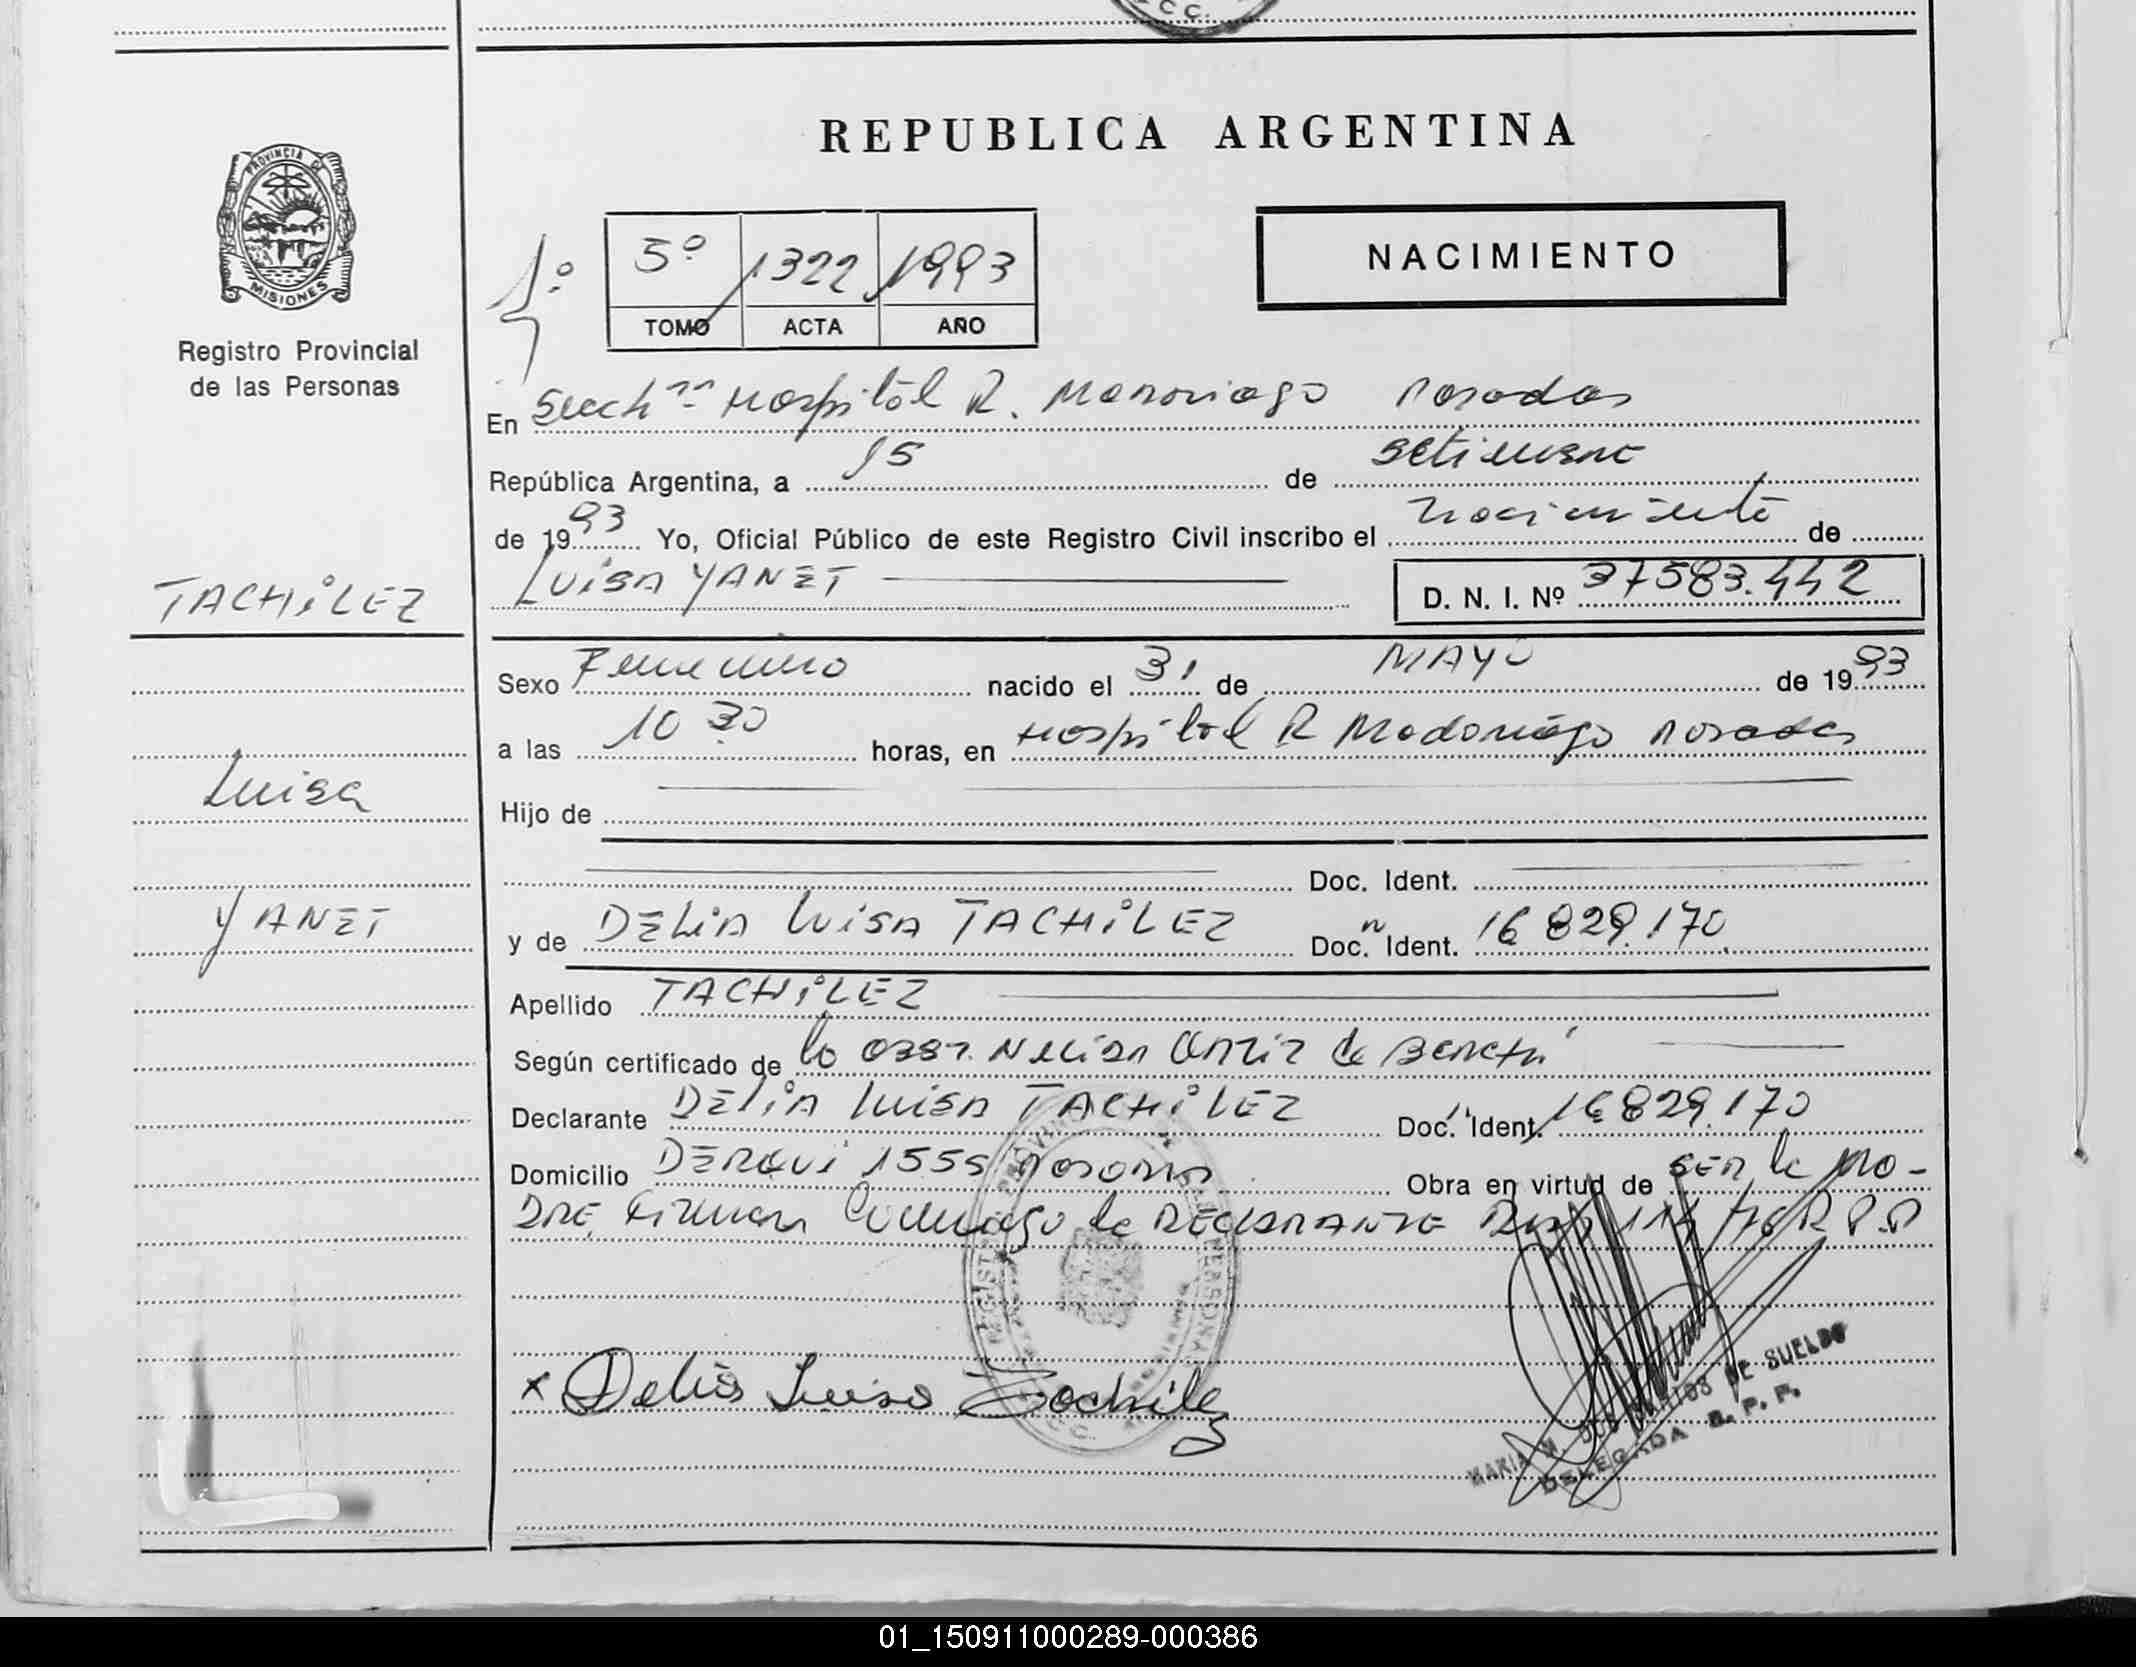 C.C.
REPUBLICA ARGENTINA
PROVINCIA DE
MISIONES
NACIMIENTO
1º
5º 1322 1993
TOMO ACTA AÑO
Registro Provincial
de las Personas
En Hospital R. Posadas
República Argentina, a 15 de
de 1993 Yo, Oficial Público de este Registro Civil inscribo el nacimiento de
LUISA YANET D. N. I. Nº 37583.442
TACHILEZ
Sexo Femenino nacido el 31 de MAYO de 1993
a las 10 30 horas, en Hospital R Madariaga Posadas
Luisa
Hijo de
Doc. Ident.
YANET
y de DELIA LUISA TACHILEZ Doc. Ident. 16 829.170
Apellido TACHILEZ
Según certificado de la obst. de
Declarante DELIA LUISA TACHILEZ Doc. Ident. 16829.170
Domicilio DERQUI 1555 Posadas Obra en virtud de SER la MA-
DRE, Firman Conmigo la DECLARANTE
x Delia Luisa Tachilez
MARIA M. DE SUELDO
DELEGADA R. P. P.
01_150911000289-000386